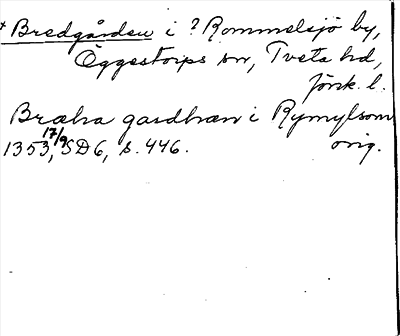 * Bredgården i ? Rommelsjö by,
Öggestorps sn, Tveta hd,
Jönk. l.
Bræha gardhæn i Rymylsom
1353 17/9, SD 6, s. 446. orig.